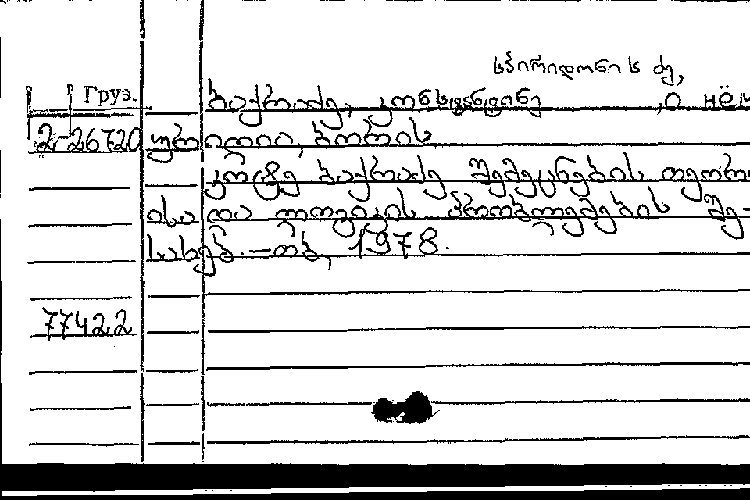 სპირიდონის ძე,
Груз. ბაქრაძე, კონსტანტინე ,о нём
2-26720 ყურ იოია, ბორის
კოტე ბაქრაძე შემეცნების თეორი
ისა და ლოგიკის პრობლემების შე-
სახებ.—თბ, 1978.
77422